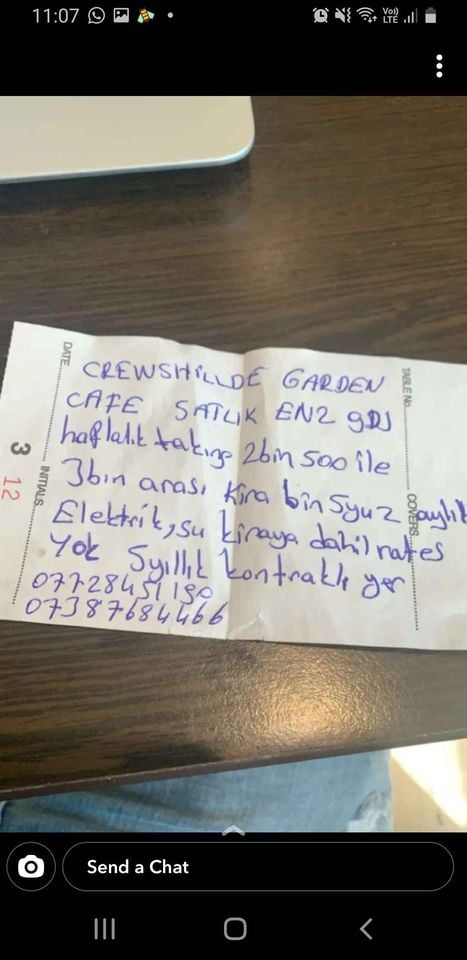 11:07
Vo))
LTE
DATE
TABLE No.
3
12
INITIALS
COVERS
CREWSHİLLDE GARDEN
CAFE SATLIK EN2 9DJ
haflalık takıng 2bin 500 ile
3bin arası Kira bin 5yuz aylık
Elektrik, su kiraya dahil rates
Yok 5yıllık kontraklı yer
07728451190
07387684466
Send a Chat